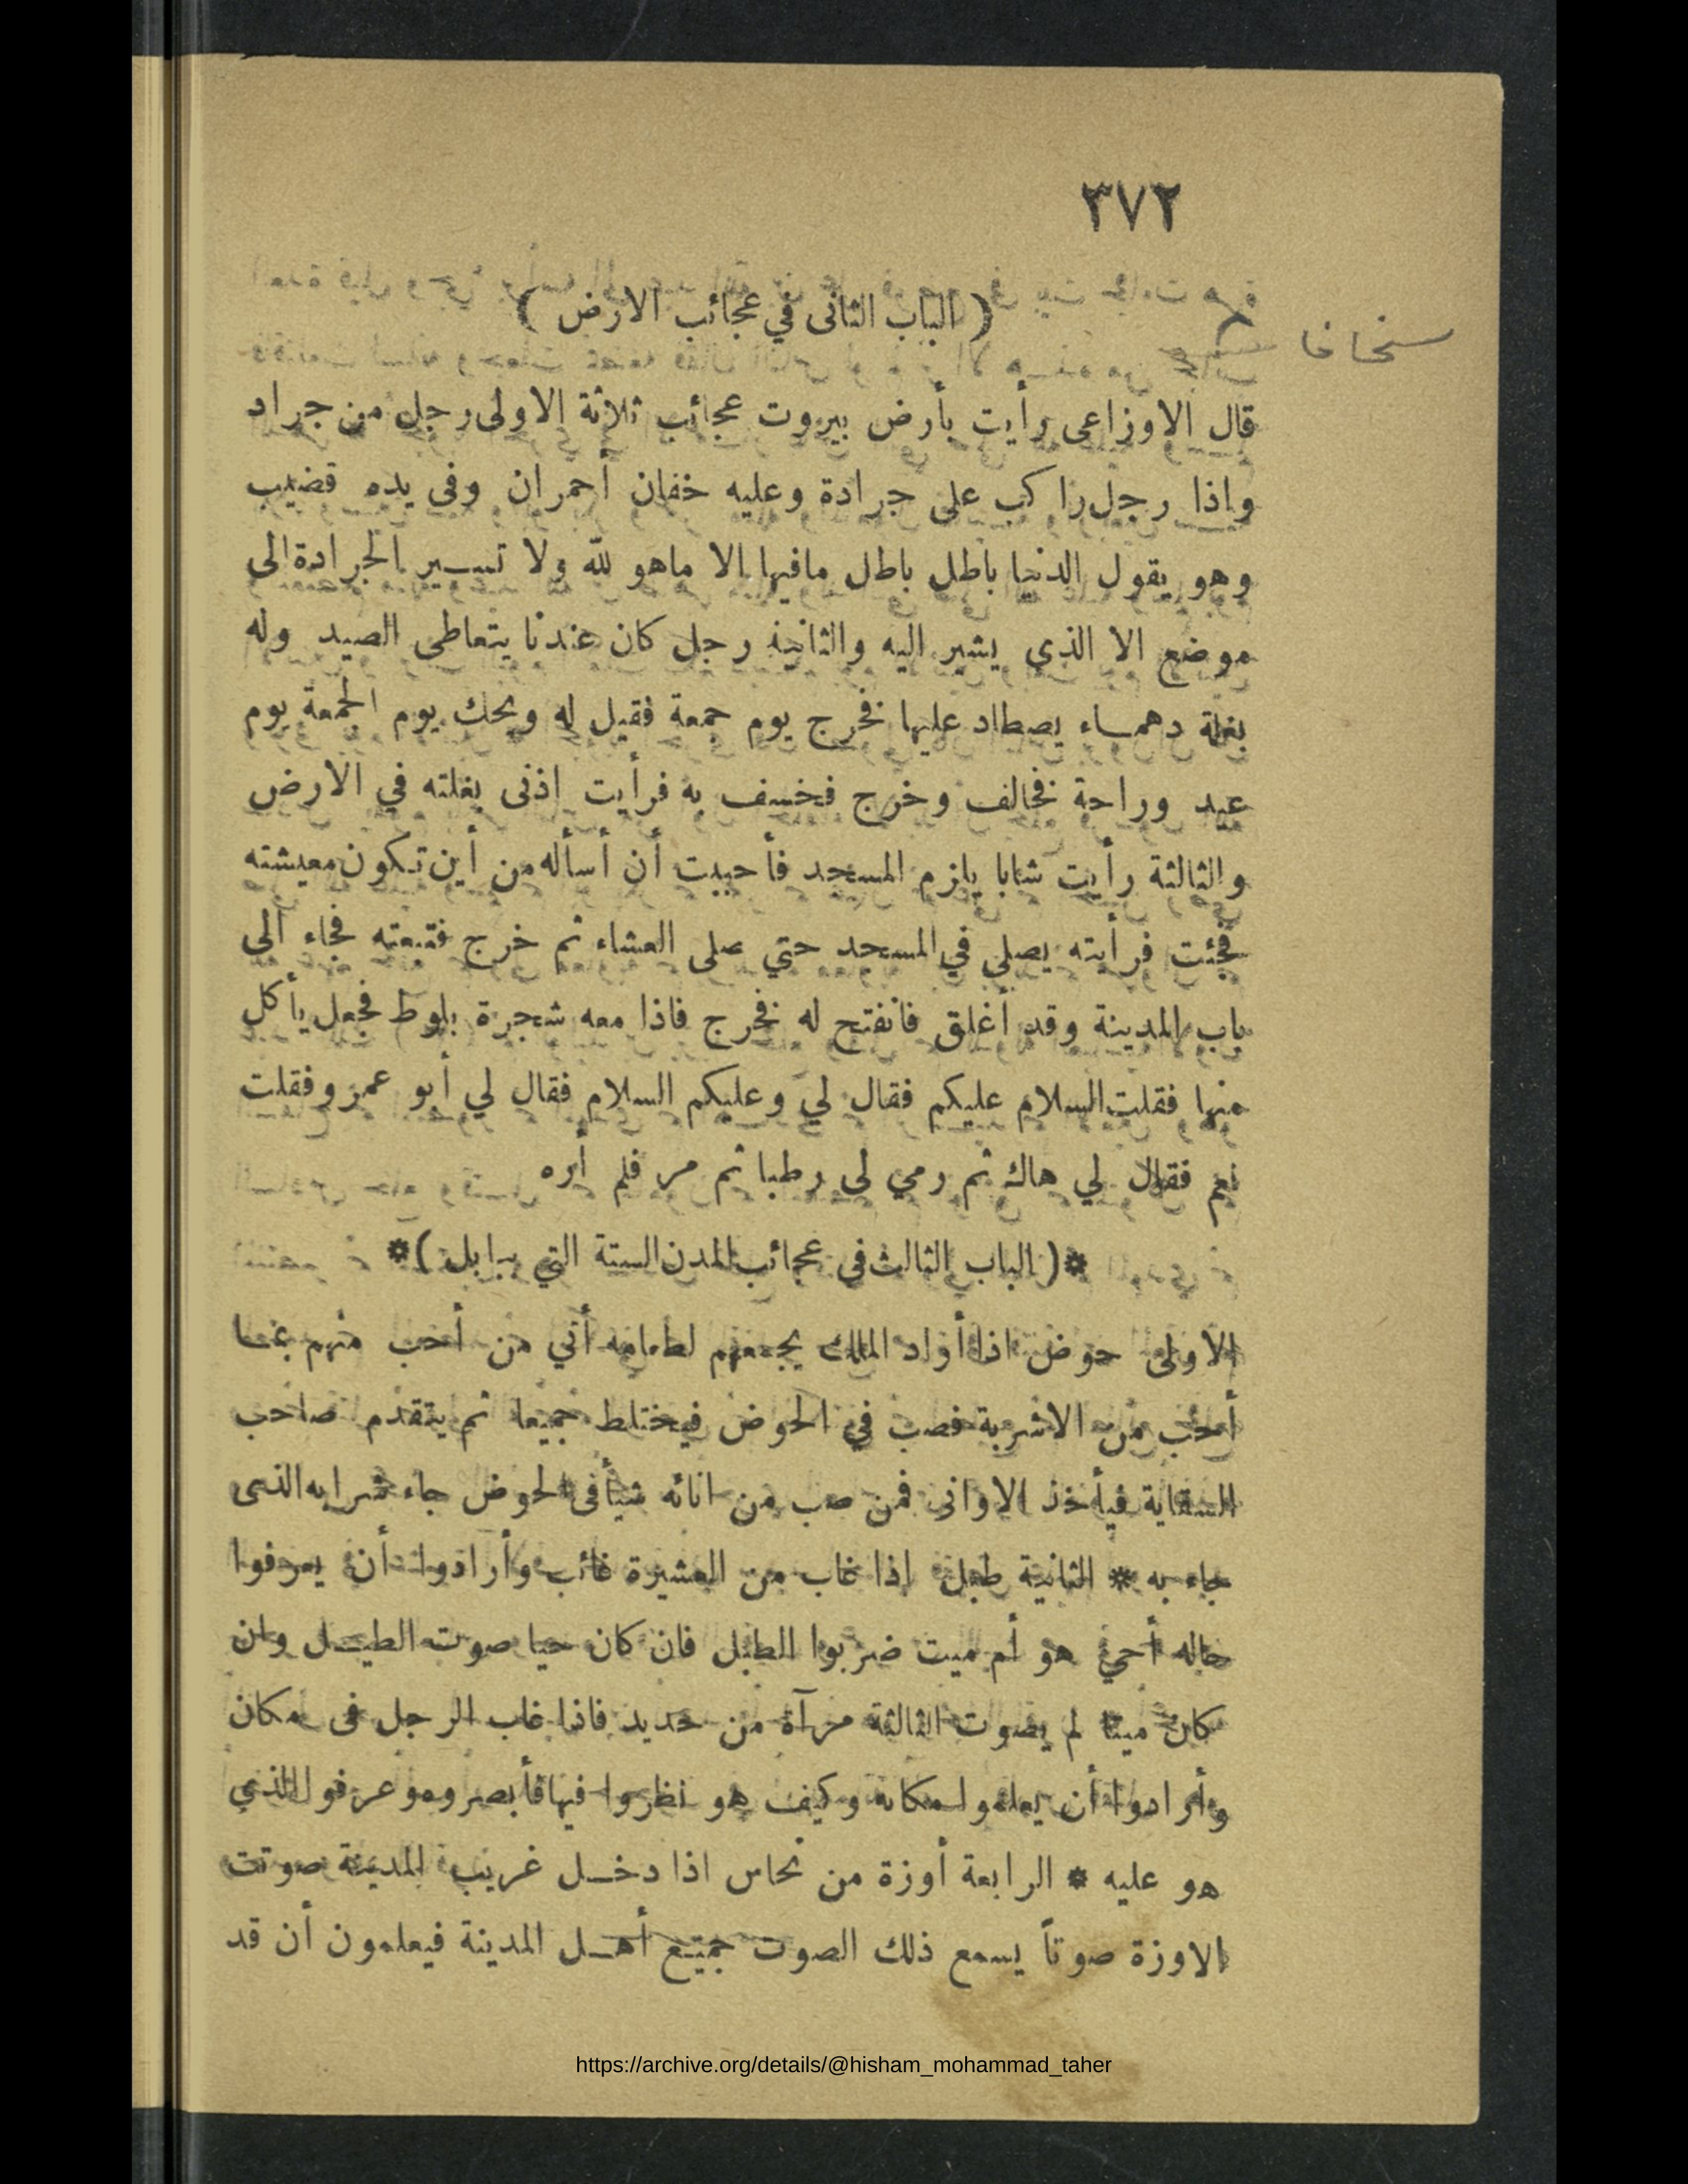 ٣٧٢
( الباب الثانى في عجائب الارض )
قال الاوزاعى رأيت بأرض بيروت عجائب ثلاثة الاولى رجل من جراد
واذا رجل راكب على جرادة وعليه خفان أحمران وفى يده قضيب
وهو يقول الدنيا باطل باطل مافيها الا ماهو لله ولا تسير الجرادة الى
موضع الا الذى يشير اليه والثانية رجل كان عندنا يتعاطى الصيد وله
بغلة دهمساء يصطاد عليها فخرج يوم جمعة فقيل له ويحك يوم الجمعة يوم
عيد وراحة فخالف وخرج فخسف به فرأيت اذنى بغلته في الارض
والثالثة رأيت شابا يلزم المسجد فأحببت أن أسأله من أين تكون معيشته
فجئت فرأيته يصلي في المسجد حتي صلى العشاء ثم خرج فتبعته فجاء الى
باب المدينة وقد أغلق فانفتح له فخرج فاذا معه شجرة بلوط فجعل يأكل
منها فقلت السلام عليكم فقال لي وعليكم السلام فقال لي أبو عمرو فقلت
نعم فقال لي هاك ثم رمي لى رطبا ثم مر فلم أره
*( الباب الثالث فى عجائب المدن الستة التي ببابل )*
الاولى حوض اذا أراد الملك يجمعهم لطعامه أتي من أحب منهم بما
أحب من الاشربة فصب في الحوض فيختلط جميعا ثم يتقدم صاحب
السقاية فيأخذ الاوانى فمن صب من انائه شيأ فى الحوض جاء شرابه الذى
جاء به * الثانية طبل اذا غاب من العشيرة غائب وأرادوا أن يعرفوا
حاله أحي هو أم ميت ضربوا الطبل فان كان حيا صوت الطبل وان
كان ميتا لم يصوت الثالثة مرآة من حديد فاذا غاب الرجل فى مكان
وأرادوا أن يعلموا مكانه وكيف هو نظروا فيها فأبصروه وعرفوا الذي
هو عليه * الرابعة أوزة من نحاس اذا دخل غريب المدينة صوتت
الاوزة صوتاً يسمع ذلك الصوت جميع أهل المدينة فيعلمون أن قد
https://archive.org/details/@hisham_mohammad_taher